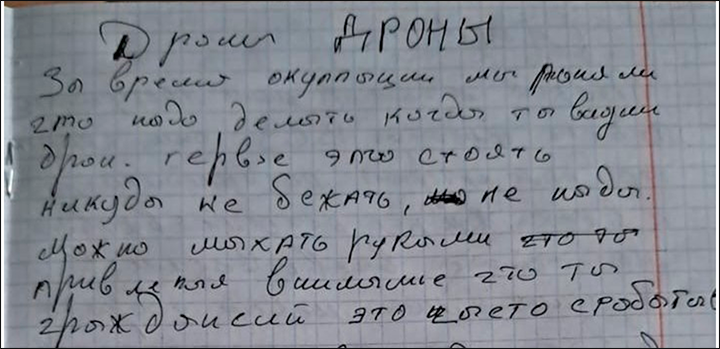 Дроны ДРОНЫ
За время окуппации мы поняли
что надо делать когда ты видиш
дрон. первое это стоять
никуды не бежать, не нады.
Можно мыхать рукыми что ты
привлекая внимыние что ты
грыждынский это чысто сробаты